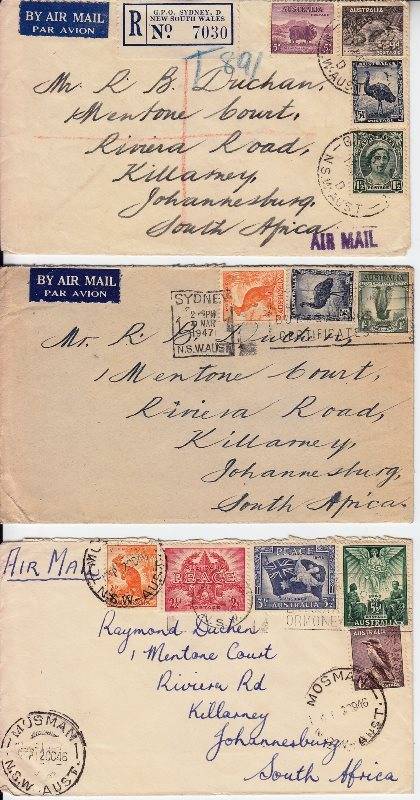 BY AIR MAIL
PAR AVION
R
G.P.O. SYDNEY, D
NEW SOUTH WALES
No 7030
T 891
AUSTRALIA
AUSTRALIA
POSTAGE
Mr. R B. Duchen,
Mentone Court,
Riviera Road,
Killarney,
Johannesburg,
South Africa.
N.S.W. AUST
AIR MAIL
BY AIR MAIL
PAR AVION
SYDNEY
2 - PM
MAR
1947
N.S.W. AUST
CERTIFICATE
Mr. R B Duchen,
1 Mentone Court,
Riviera Road,
Killarney,
Johannesburg,
South Africa.
AIR MAIL
N.S.W. AUST
PEACE
POSTAGE
PEACE
AUSTRALIA
AUSTRALIA
Raymond Duchen
1 Mentone Court
Riviera Rd
Killarney
Johannesburg
South Africa
MOSMAN
AUST.
MOSMAN
N.S.W. AUST